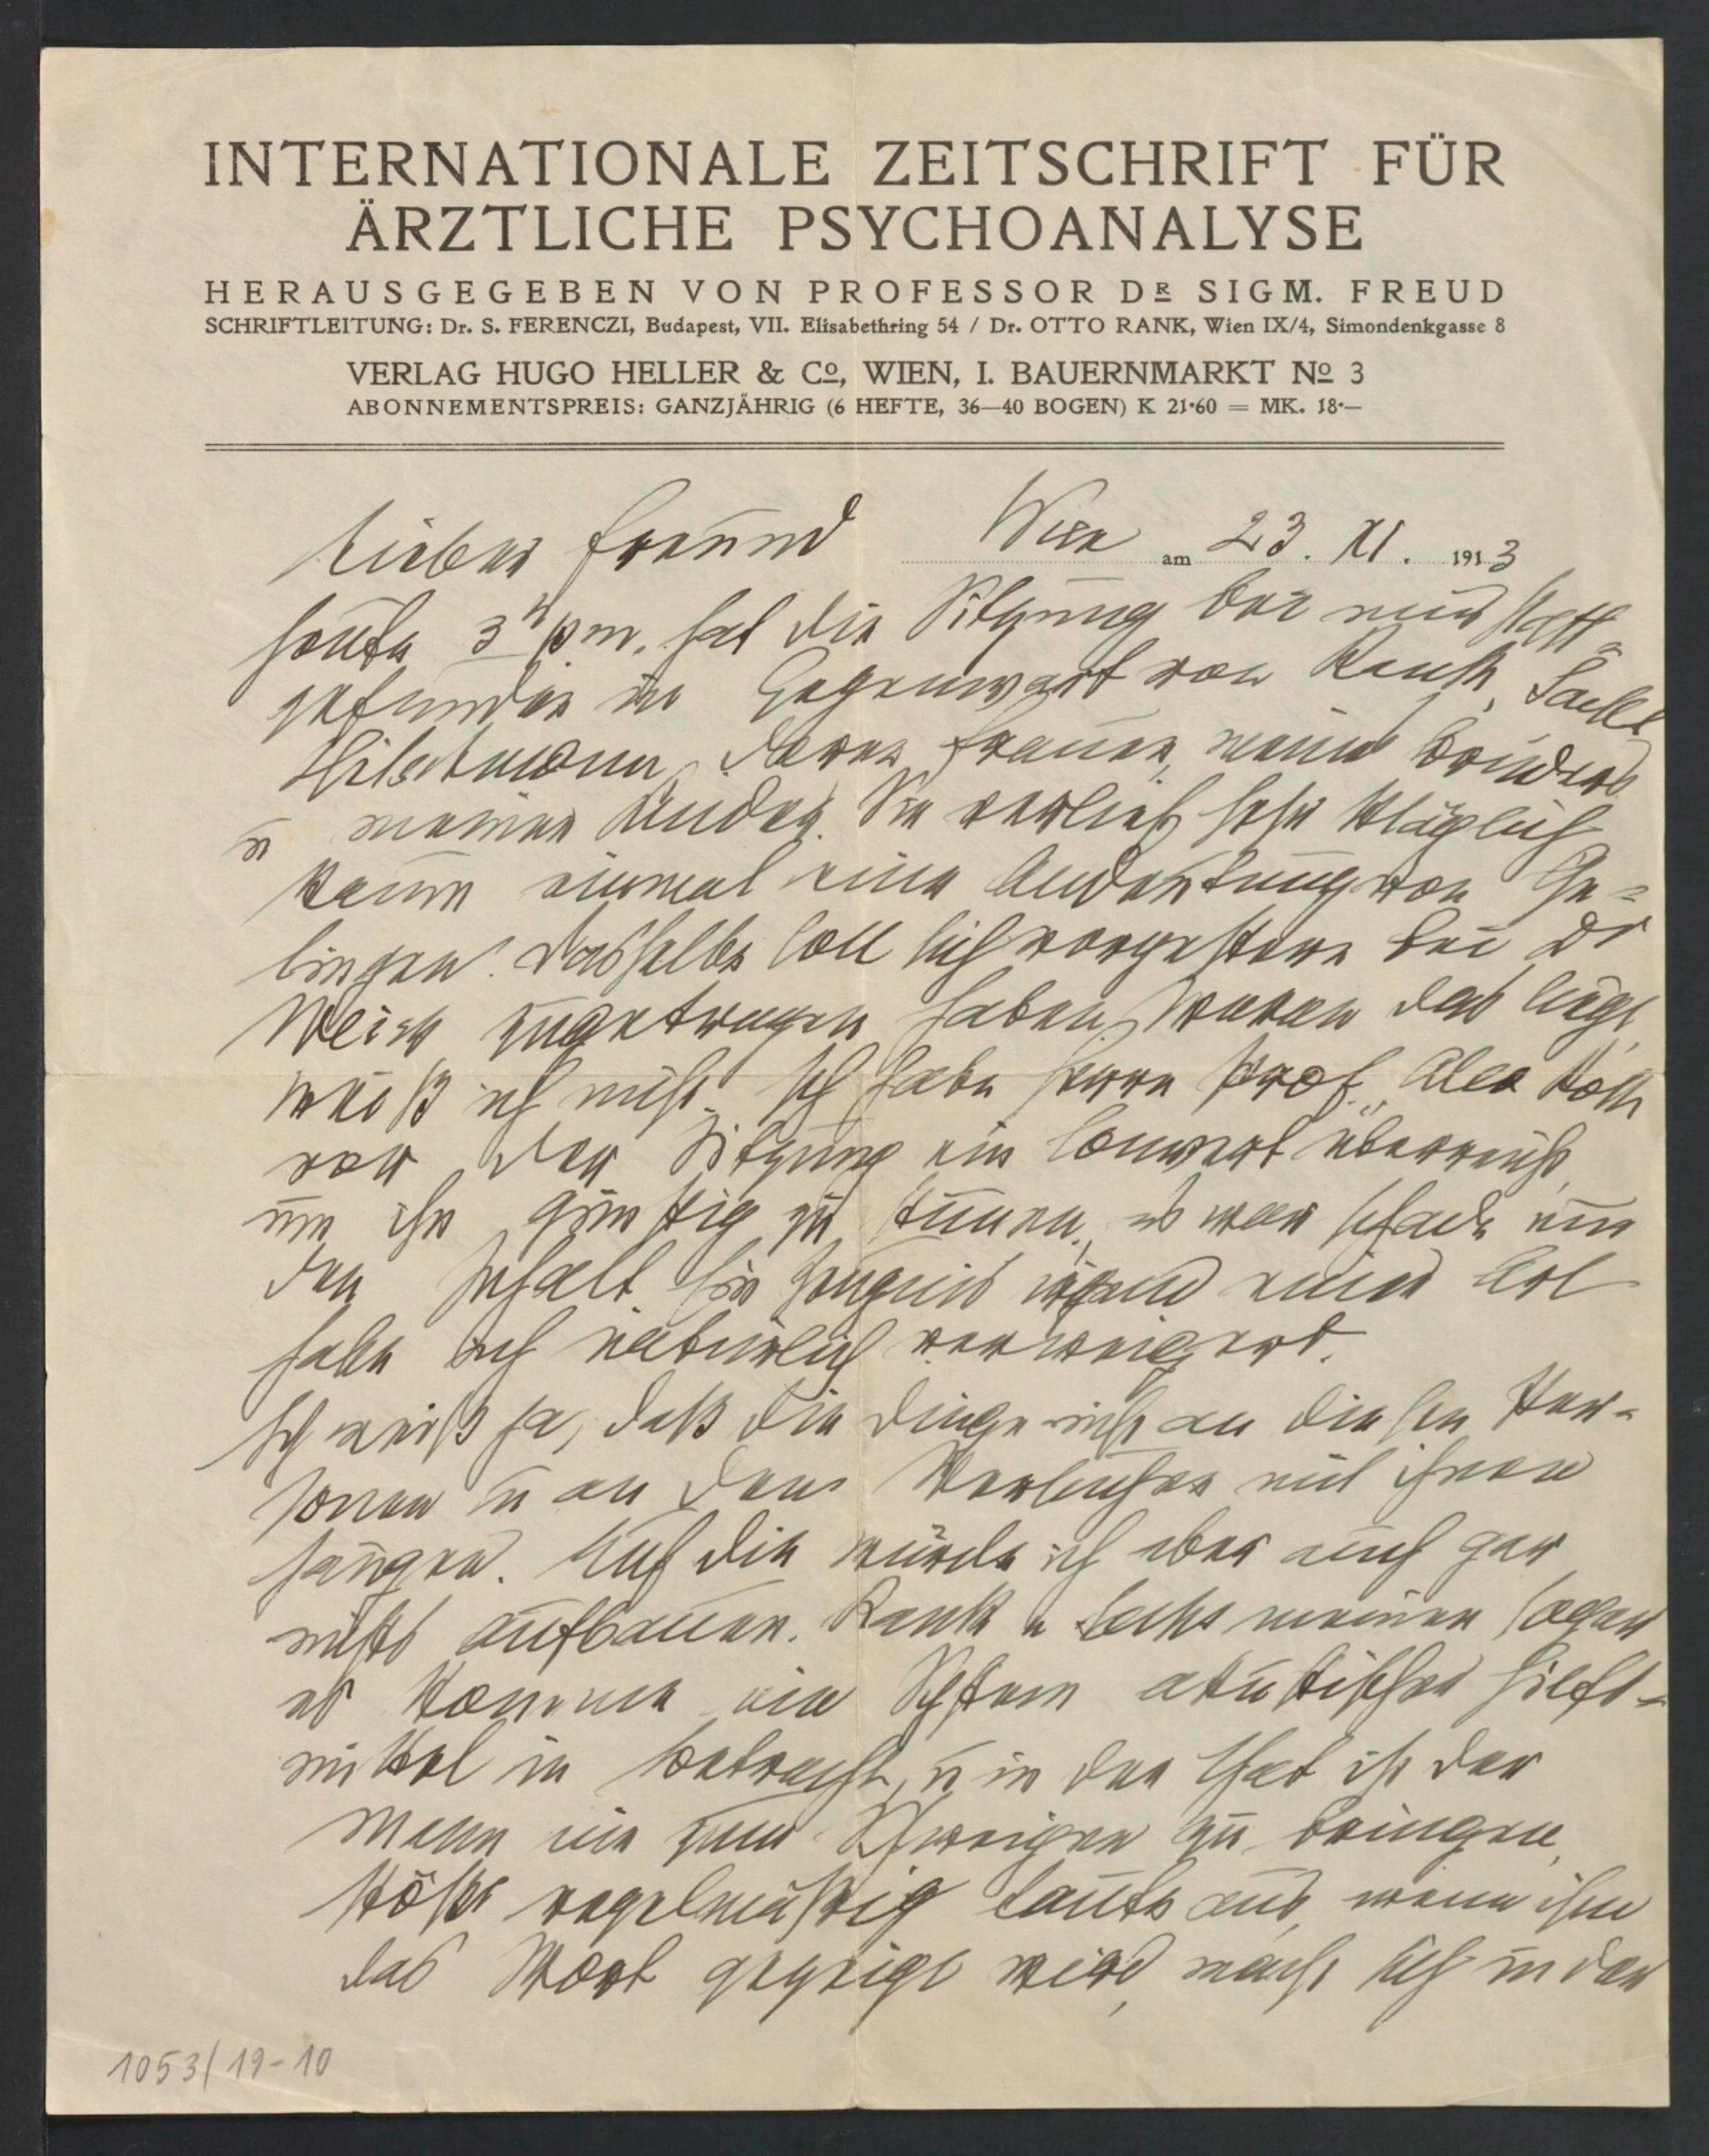 INTERNATIONALE ZEITSCHRIFT FÜR
ÄRZTLICHE PSYCHOANALYSE
HERAUSGEGEBEN VON PROFESSOR DR SIGM. FREUD
SCHRIFTLEITUNG: Dr. S. FERENCZI, Budapest, VII. Elisabethring 54 / Dr. OTTO RANK, Wien IX/4, Simondenkgasse 8
VERLAG HUGO HELLER & Co, WIEN, I. BAUERNMARKT No 3
ABONNEMENTSPREIS: GANZJÄHRIG (6 HEFTE, 36—40 BOGEN) K 21·60 = MK. 18·—
Wien am 23. XI. 1913
Lieber Freund
Heute 3h pm. hat die Sitzung bei mir statt=
gefunden in Gegenwart von Rank, Sachs
Hitschmann, deren Frauen, meines Bruders
u meiner Kinder. Sie verlief sehr kläglich
kaum einmal eine Andeutung von Ge=
lingen. Dasselbe soll sich vorgestern bei Dr
Weiss zugetragen haben, woran das liegt,
weiß ich nicht. Ich habe Herrn Prof. Alex Roth
vor der Sitzung ein Couvert überreicht,
um ihn günstig zu stimmen, es war schade um
den Inhalt. Ein Zeugnis irgend einer Art
habe ich natürlich verweigert.
Ich weiß ja, daß die Dinge nicht an diesen Per-
sonen u an dem Versuchen mit ihnen
hängen. Auf die würde ich aber auch gar
nichts aufbauen. Rank u Sachs meinen sogar
es komme ein System akustischer Hilfs-
mittel in Betracht, u in der That ist der
Mann nie zum Schweigen zu bringen,
stößt regelmäßig Laute aus, wenn ihm
das Wort gezeigt wird, macht sich in der
1053/19-10